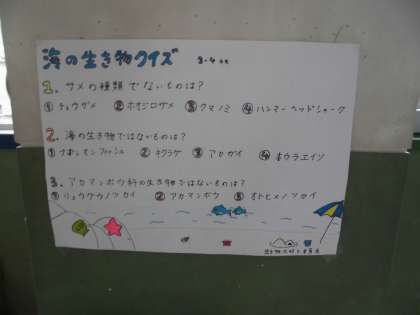 海の生き物クイズ 3-4
1. サメの種類でないものは?
① チョウザメ ② ホオジロザメ ③ クマノミ ④ ハンマーヘッドシャーク
2. 海の生き物ではないものは?
② キクラゲ ③ アカガイ ④ ホウライエソ
3. アカマンボウ科の生き物ではないものは?
① リュウグウノツカイ ② アカマンボウ ③ オトヒメノツカイ